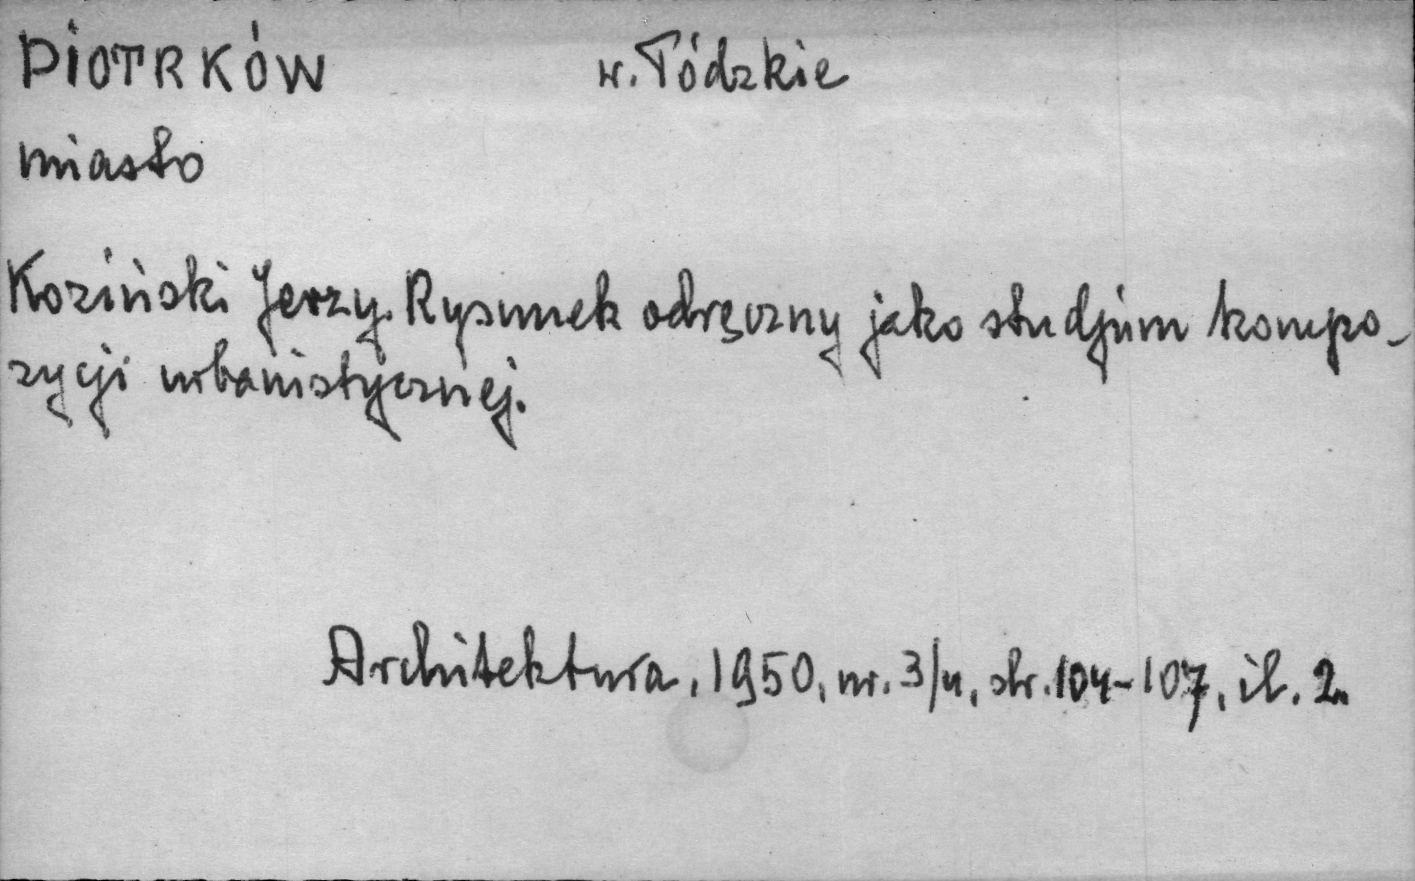 PIOTRKÓW w. Łódzkie
miasto
Koziński Jerzy. Rysunek odręczny jako studjum kompo-
zycji urbanistycznej.
Architektura, 1950, nr. 3/4, str. 104-107, il. 2.